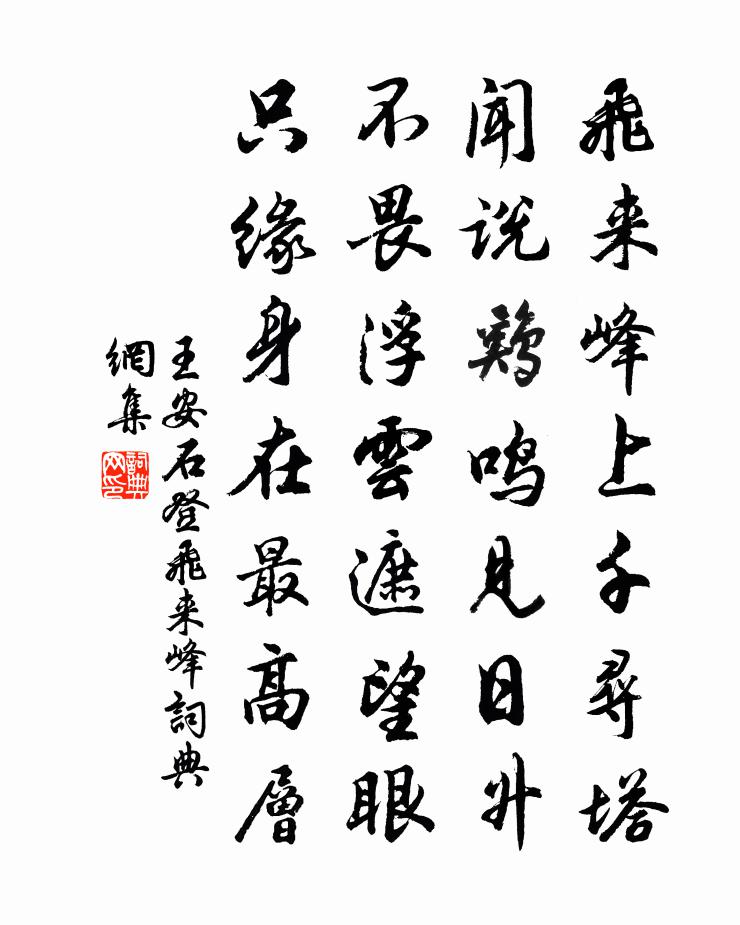 飛来峰上千尋塔
闻说鷄鸣見日升
不畏浮雲遮望眼
只緣身在最高層
王安石登飛来峰詞典
網集
詞典
网印